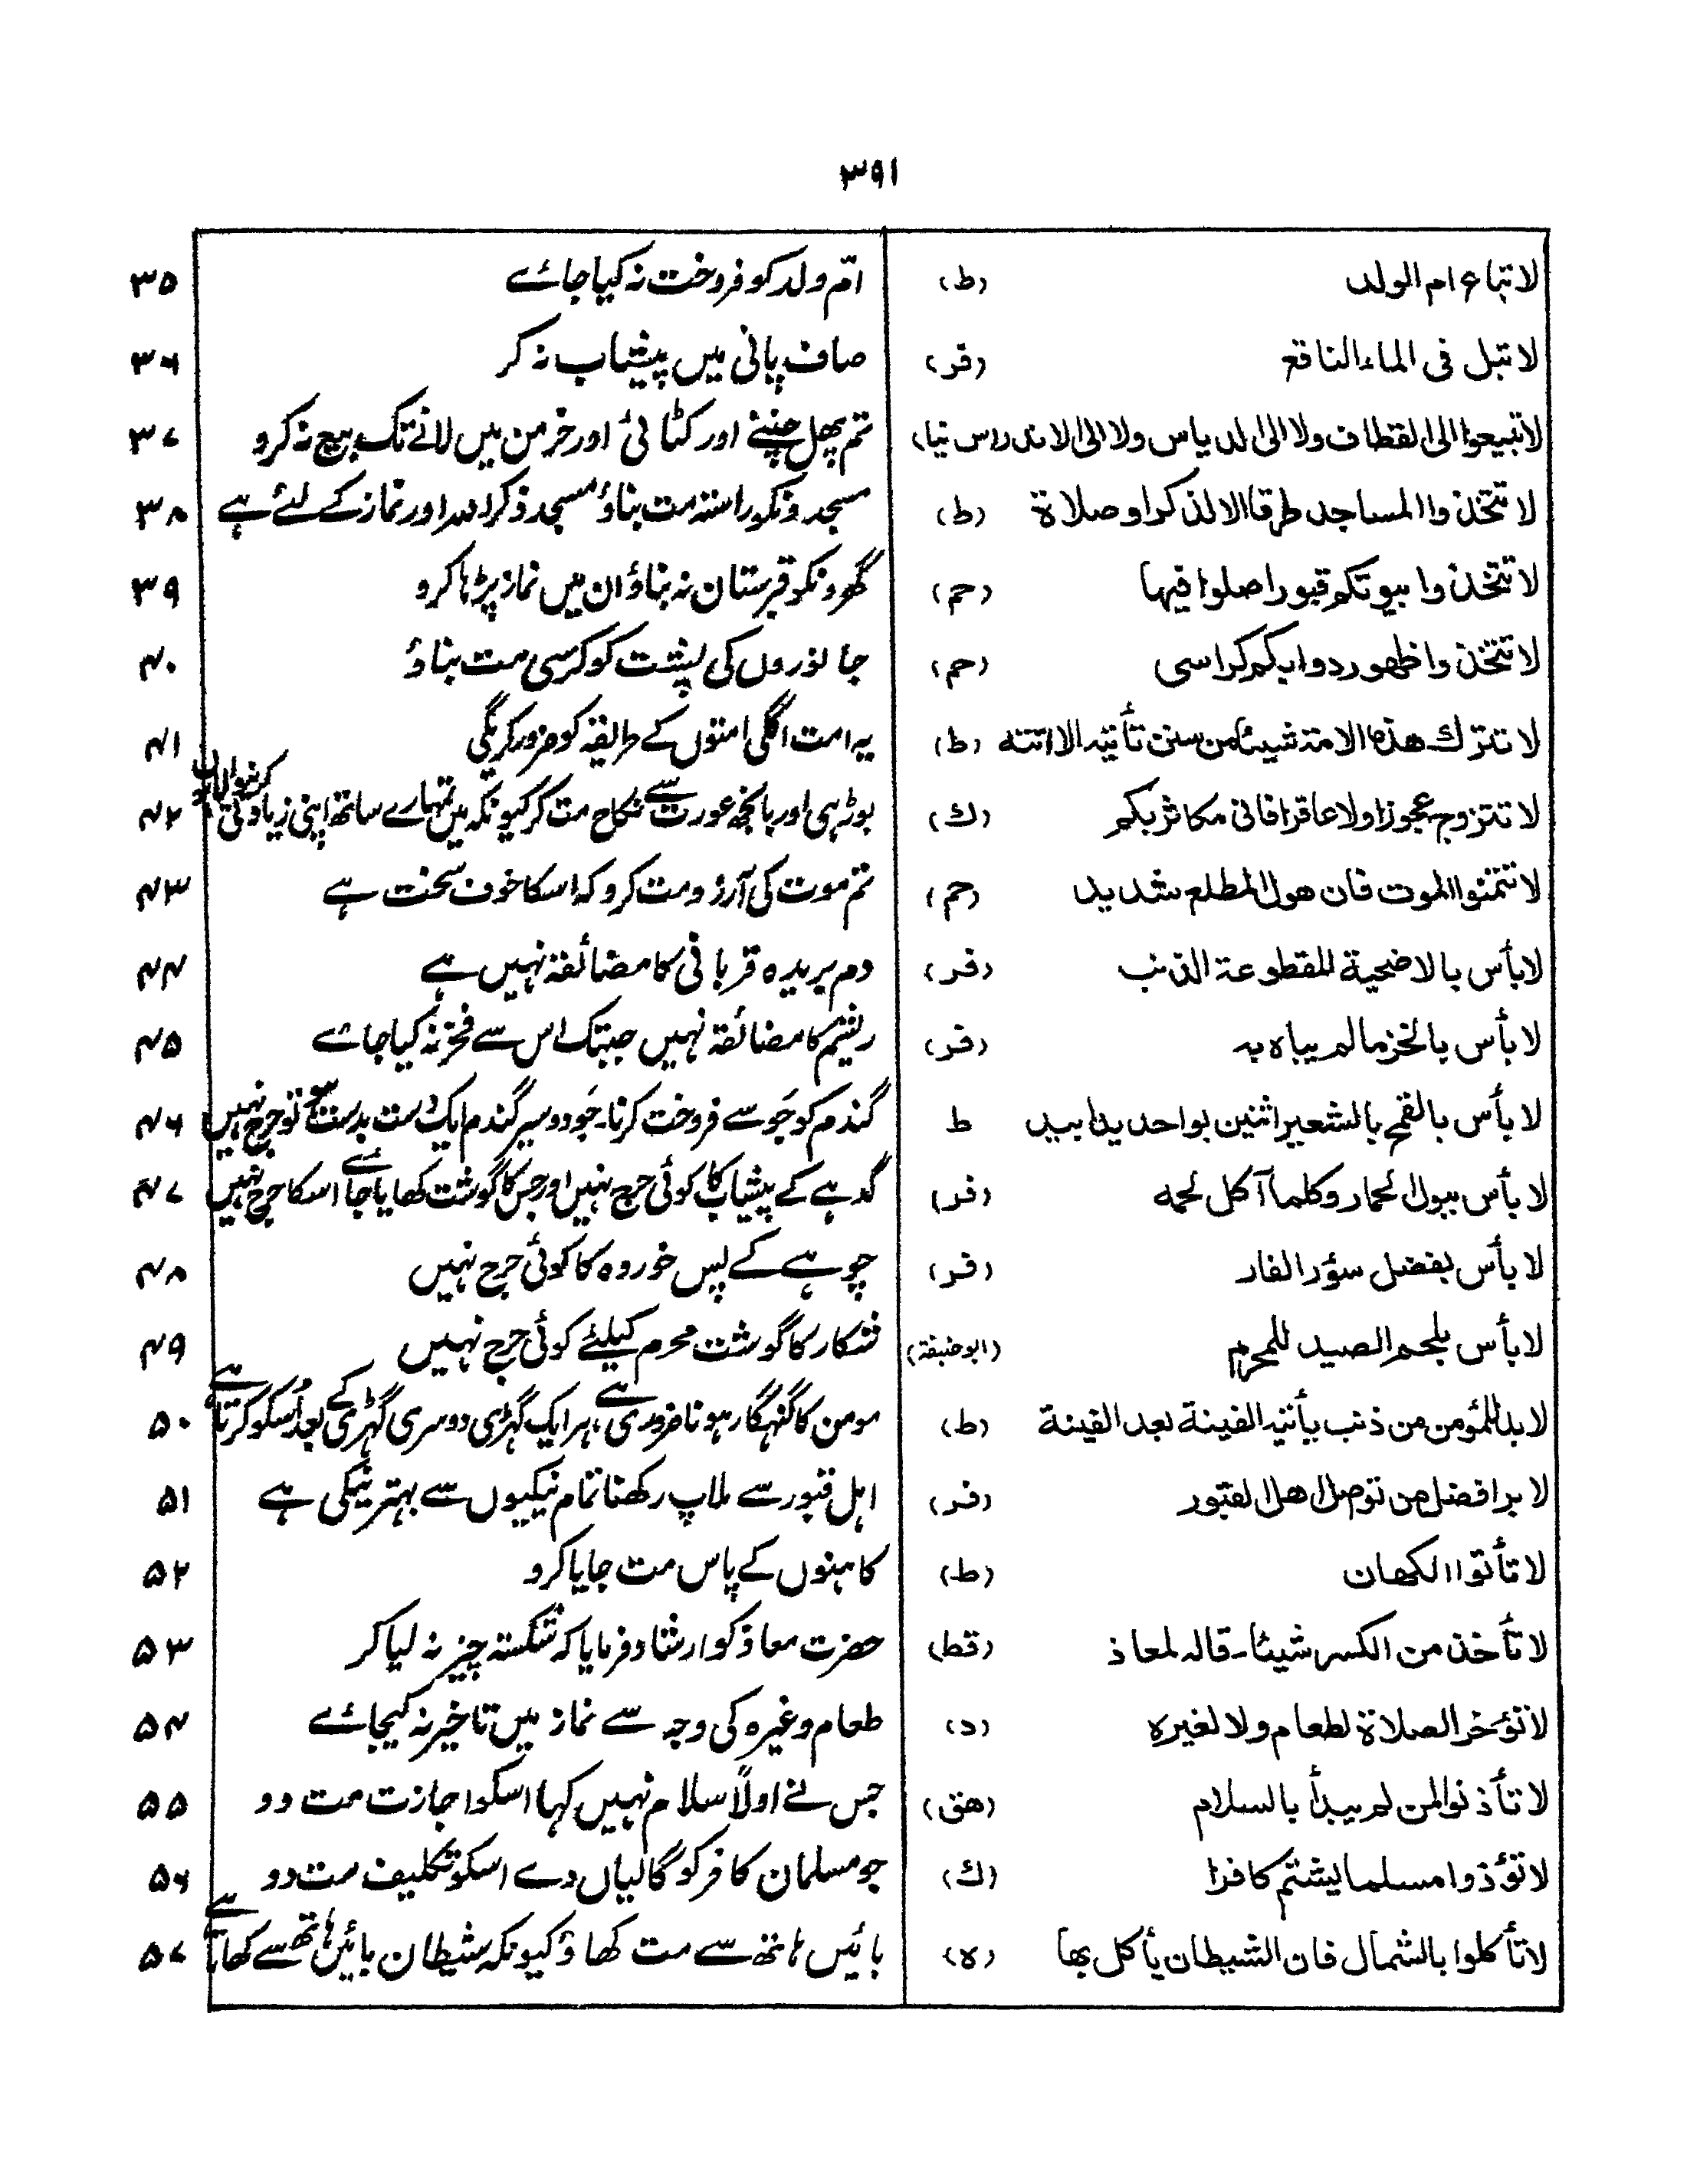 ۳۹۱
لا تباع ام الولد (ط) امّ ولد کو فروخت نہ کیا جائے ۳۵
لا تبل فی الماء الناقع (فر) صاف پانی میں پیشاب نہ کر ۳۶
لا تبیعوا الی القطاف ولا الی الدیاس ولا الی الاندراس تم پھل چننے اور کٹائی اور خرمن میں لانے تک بیع نہ کرو ۳۷
لا تتخذوا المساجد طرقا الا لذکر او صلاة (ط) مسجدونکو راستہ مت بناؤ مسجد ذکر اللہ اور نماز کے لئے ہے ۳۸
لا تتخذوا بیوتکم قبورا صلوا فیها (حم) گھرونکو قبرستان نہ بناؤ ان میں نماز پڑہا کرو ۳۹
لا تتخذوا ظهور دوابکم کراسی (حم) جانوروں کی پشت کو کرسی مت بناؤ ۴۰
لا تترك هذه الامة شیئا من سنن تأتیه الا اتته (ط) یہ امت اگلی امتوں کے طریقہ کو ضرور کریگی ۴۱
لا تتزوج عجوزا ولا عاقرا فانی مکاثر بکم (ك) بوڑہی اور بانجھ عورت سے نکاح مت کر کیونکہ میں تمہارے ساتھ اپنی زیادتی کرنیوالا ہوں ۴۲
لا تتمنوا الموت فان هول المطلع شدید (حم) تم موت کی آرزو مت کرو کہ اسکا خوف سخت ہے ۴۳
لا بأس بالاضحیة المقطوعة الذنب (فر) دم بریدہ قربانی کا مضائقہ نہیں ہے ۴۴
لا بأس بالخز ما لم یباه به (فر) ریشم کا مضائقہ نہیں جبتک اس سے فخر نہ کیا جائے ۴۵
لا بأس بالقمح بالشعیر اثنین بواحد یدا بید ط گندم کو جَو سے فروخت کرنا۔ جَو دو سیر گندم ایک دست بدست تو حرج نہیں ۴۶
لا بأس ببول الحمار وکلما آکل لحمه (فر) گدہے کے پیشاب کا کوئی حرج نہیں اور جس کا گوشت کھایا جائے اسکا حرج نہیں ۴۷
لا بأس بفضل سؤر الفار (فر) چوہے کے پس خوردہ کا کوئی حرج نہیں ۴۸
لا بأس بلحم الصید للمحرم (ابوحنیفة) شکار کا گوشت محرم کیلئے کوئی حرج نہیں ۴۹
لا بد للمؤمن من ذنب یأتیه الفینة بعد الفینة (ط) مومن کا گنہگار ہونا ضروری ہے، ہر ایک گہڑی دوسری گہڑی کے بعد اُسکو کرتا ہے ۵۰
لا بر افضل من توصل اهل القبور (فر) اہل قبور سے ملاپ رکھنا تمام نیکیوں سے بہتر نیکی ہے ۵۱
لا تأتوا الکهان (ط) کاہنوں کے پاس مت جایا کرو ۵۲
لا تأخذ من الکسر شیئا۔ قاله لمعاذ (قط) حضرت معاذ کو ارشاد فرمایا کہ شکستہ چیز نہ لیا کر ۵۳
لا تؤخر الصلاة لطعام ولا لغیره (د) طعام وغیرہ کی وجہ سے نماز میں تاخیر نہ کیجائے ۵۴
لا تأذنوا لمن لم یبدأ بالسلام (هق) جس نے اولًا سلام نہیں کہا اسکو اجازت مت دو ۵۵
لا تؤذوا مسلما یشتم کافرا (ك) جو مسلمان کافر کو گالیاں دے اسکو تکلیف مت دو ۵۶
لا تأکلوا بالشمال فان الشیطان یأکل بها (ه) بائیں ہاتھ سے مت کھاؤ کیونکہ شیطان بائیں ہاتھ سے کھاتا ہے ۵۷